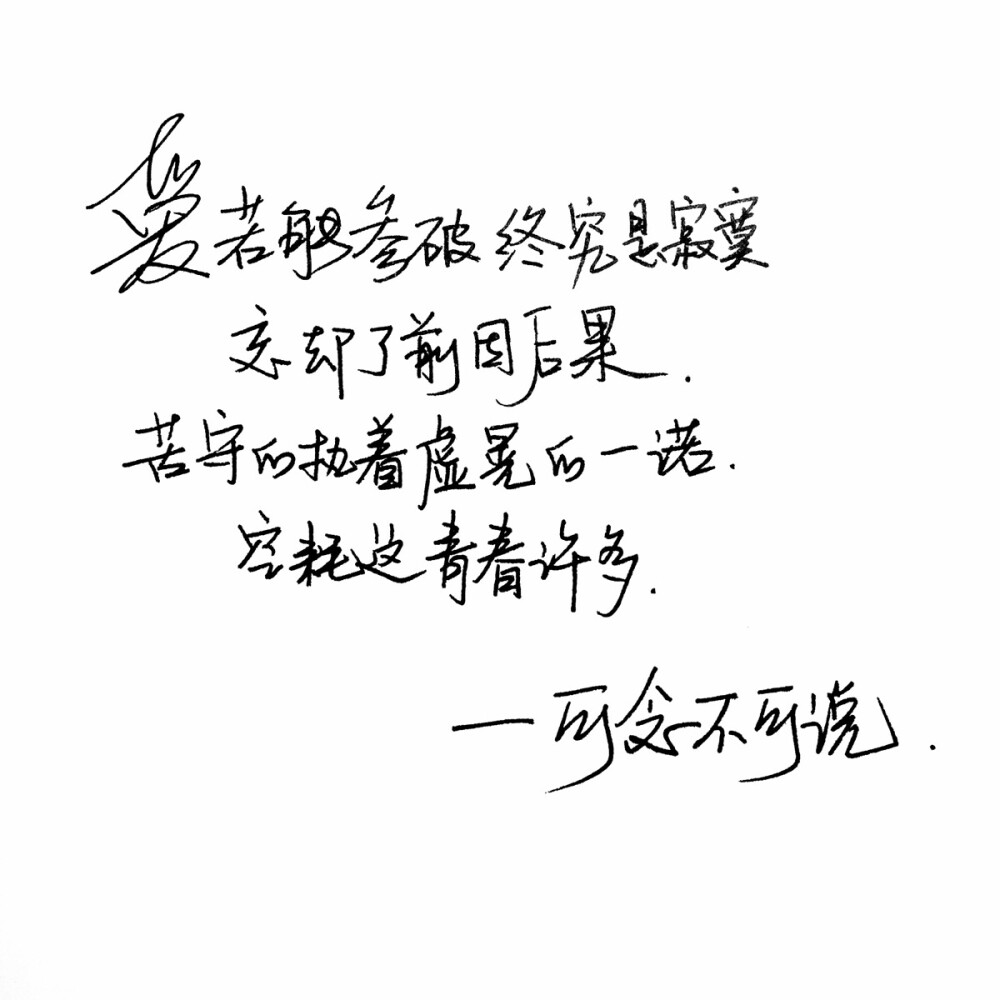 爱若能参破终究是寂寞
忘却了前因后果.
苦守的执着虚晃的一诺.
空耗这青春许多.
—可念不可说.